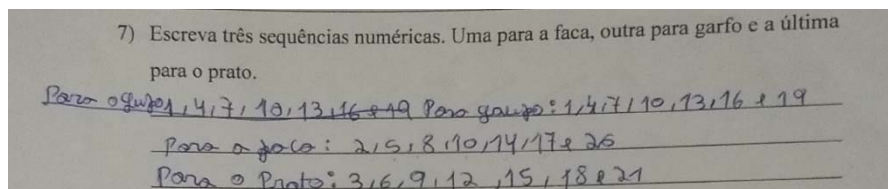 7) Escreva três sequências numéricas. Uma para a faca, outra para garfo e a última
para o prato.
Para o 1, 4, 7, 10, 13, 16 e 19 Para : 1, 4, 7, 10, 13, 16 e 19
Para a faca: 2, 5, 8, 10, 14, 17 e 26
Para o Prato: 3, 6, 9, 12, 15, 18 e 21